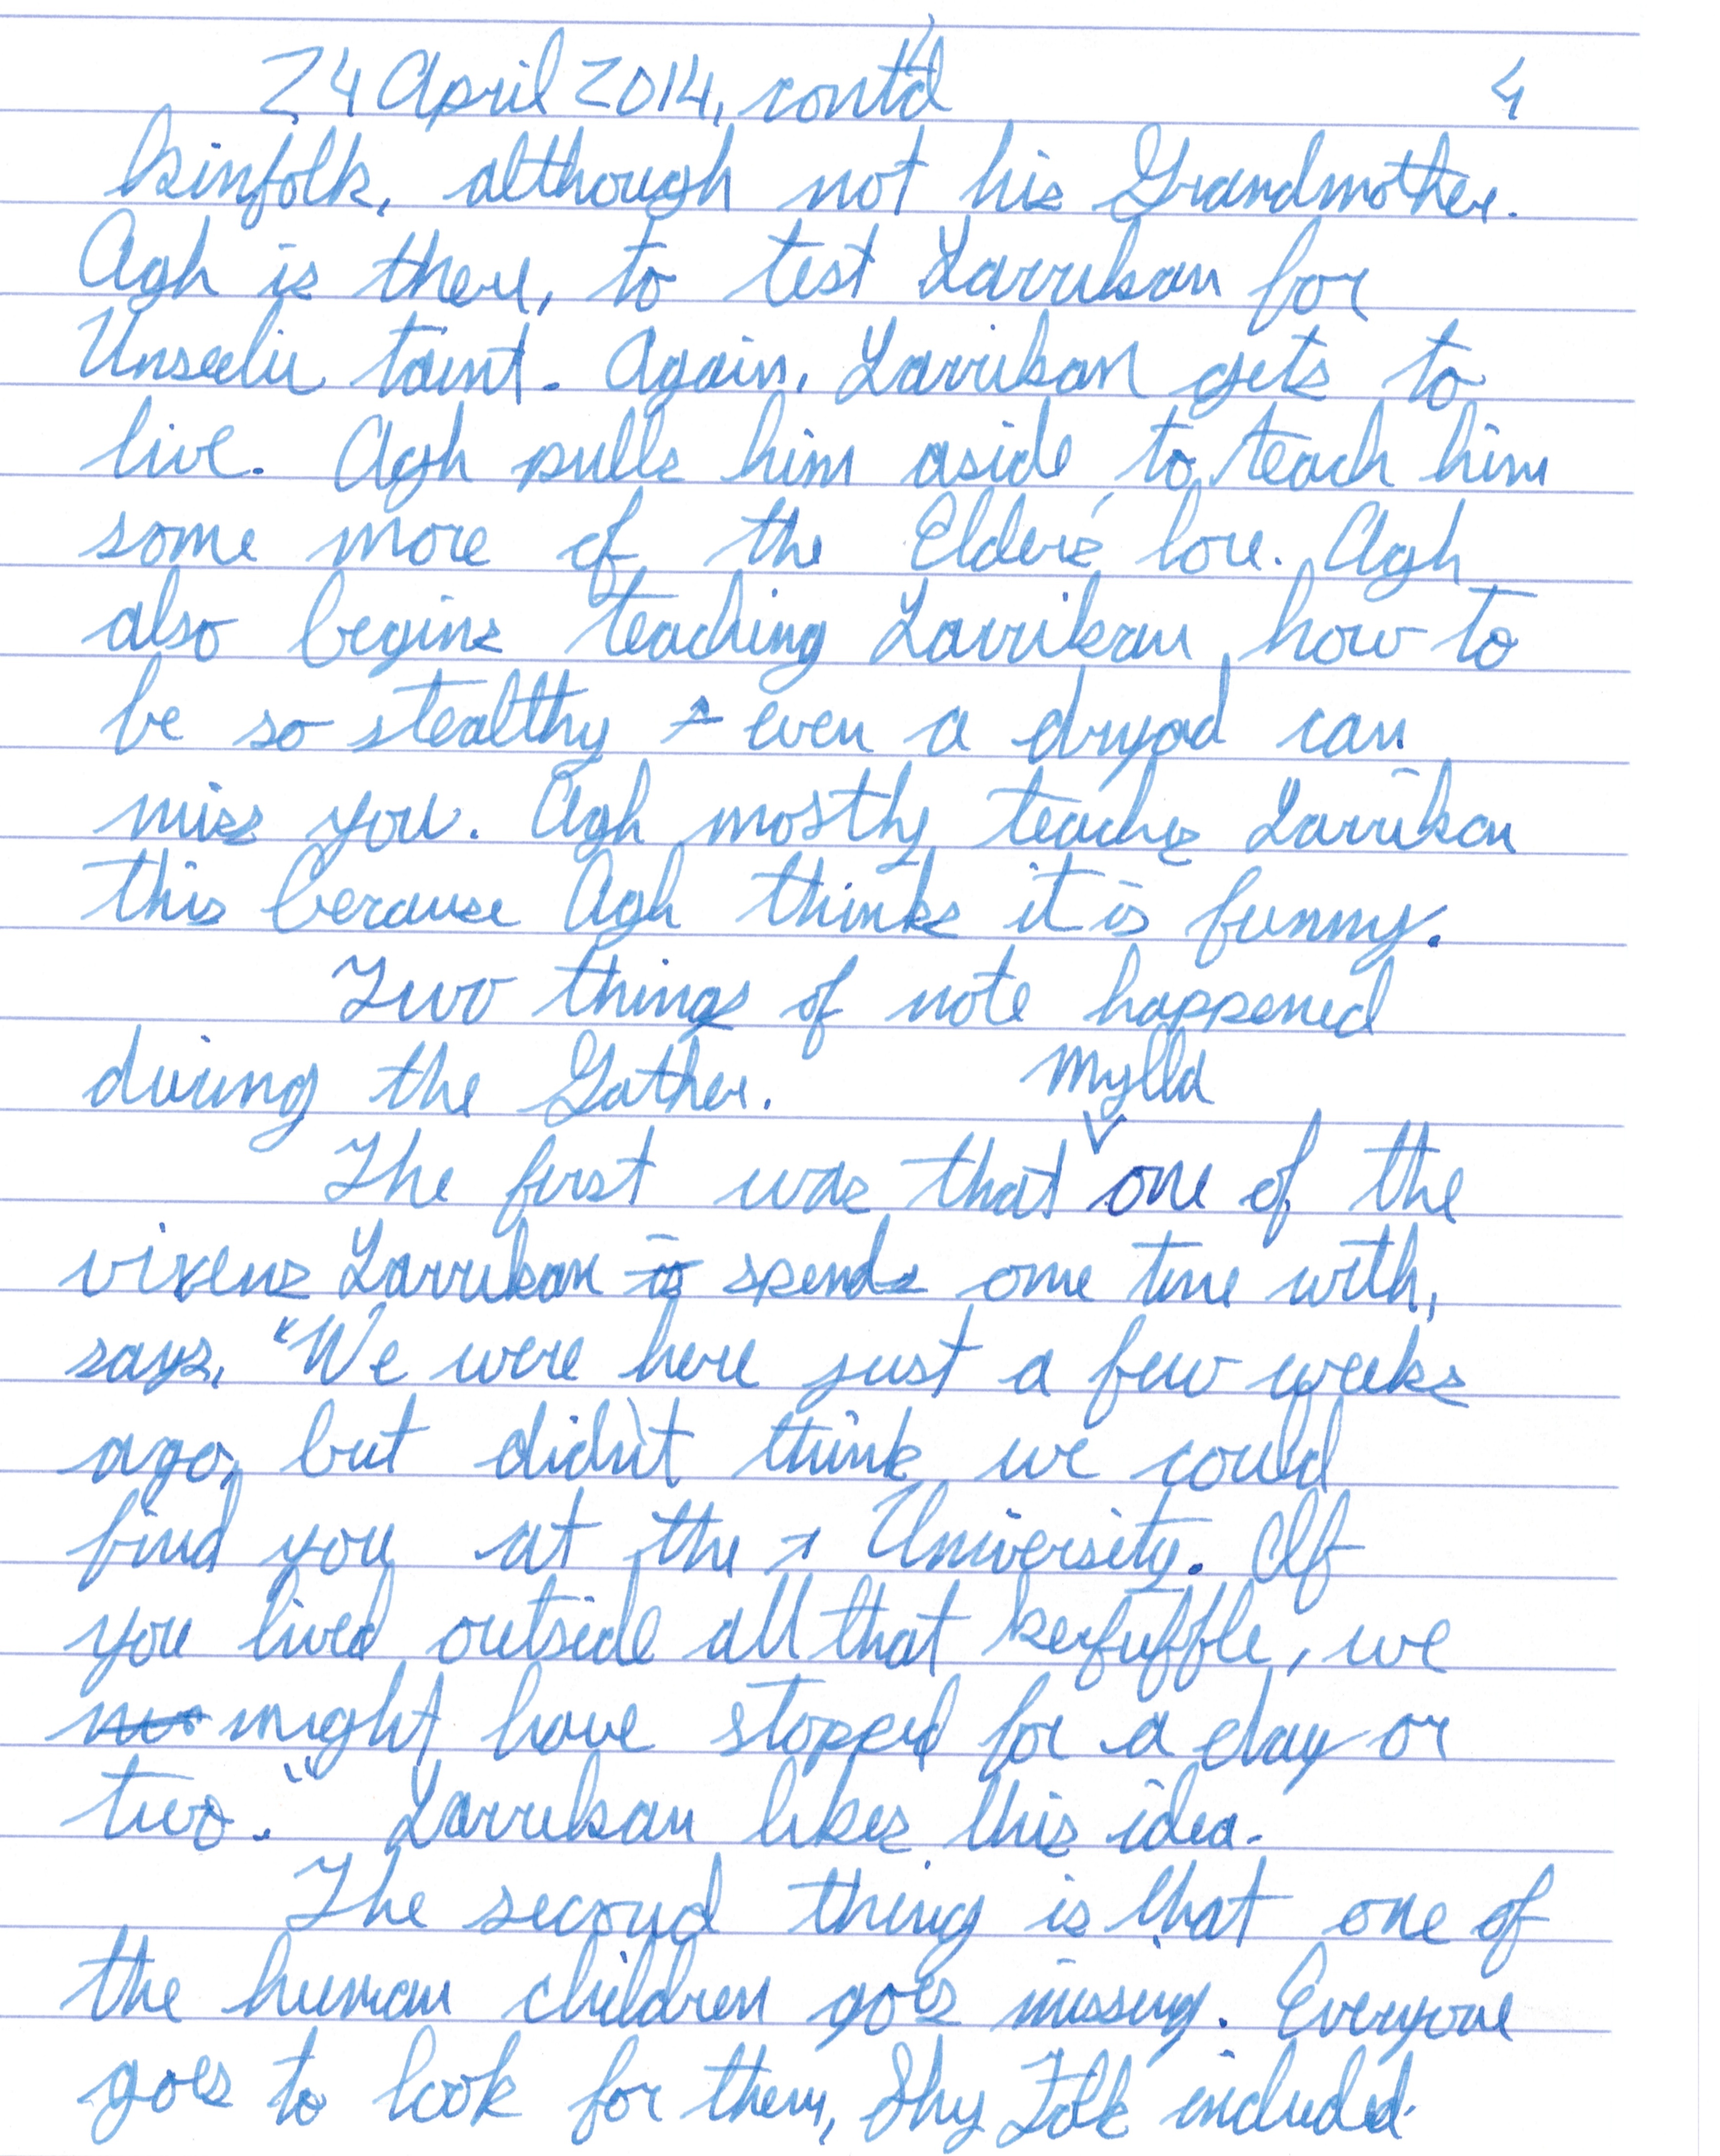 24 April 2014, cont'd 4
kinfolk, although not his Grandmother.
Agh is there, to test Larrikan for
Unseelie taint. Again, Larrikan gets to
live. Agh pulls him aside to teach him
some more of the Elders' lore. Agh
also begins teaching Larrikan how to
be so stealthy even a dryad can
miss you. Agh mostly teaches Larrikan
this because Agh thinks it is funny.
Two things of note happened
during the Gather. Mylla
The first was that one of the
vixens Larrikan is spends ome time with,
says, "We were here just a few weeks
ago, but didn't think we could
find you at the University. If
you lived outside all that kerfuffle, we
might have stopped for a day or
two." Larrikan likes this idea.
The second thing is that one of
the human children goes missing. Everyone
goes to look for them, Shy Folk included.